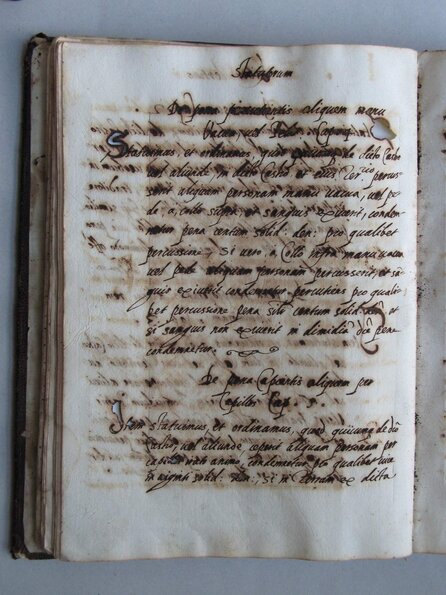 Statutorum
De pena percutientis aliquem manu
Vacua, vel Pede. Cap. 4
Statuimus, et ordinamus, quod quicunq; de dicto Castro
vel aliunde in dicto Castro et eius Ter.rio percus-
serit aliquam personam manu vacua, vel pe-
de, a, Collo supra, et sanguis exiverit, condem-
netur pena centum solid: den: pro qualibet
percussione, Si vero, a, Collo infra manu vacua
vel pede aliquam personam percusserit, et sa-
guis exiverit condemnetur percutiens pro quali-
bet percussione pena simili centum solid. den: et
si sanguis non exiverit in dimidia d.a pena
condemnetur.
De pena Capientis aliquem per
Capillos Cap. 5
Item statuimus, et ordinamus, quod quicunq; de dicto
Castro, vel aliunde ceperit aliquam personam per
capillos irato animo, condemnetur pro qualibet vice
in viginti solid: den: Si in terram ex dicta